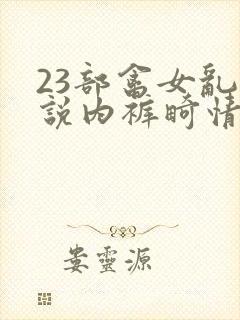 23部畲女亂
說内裤畸情
娄靈源